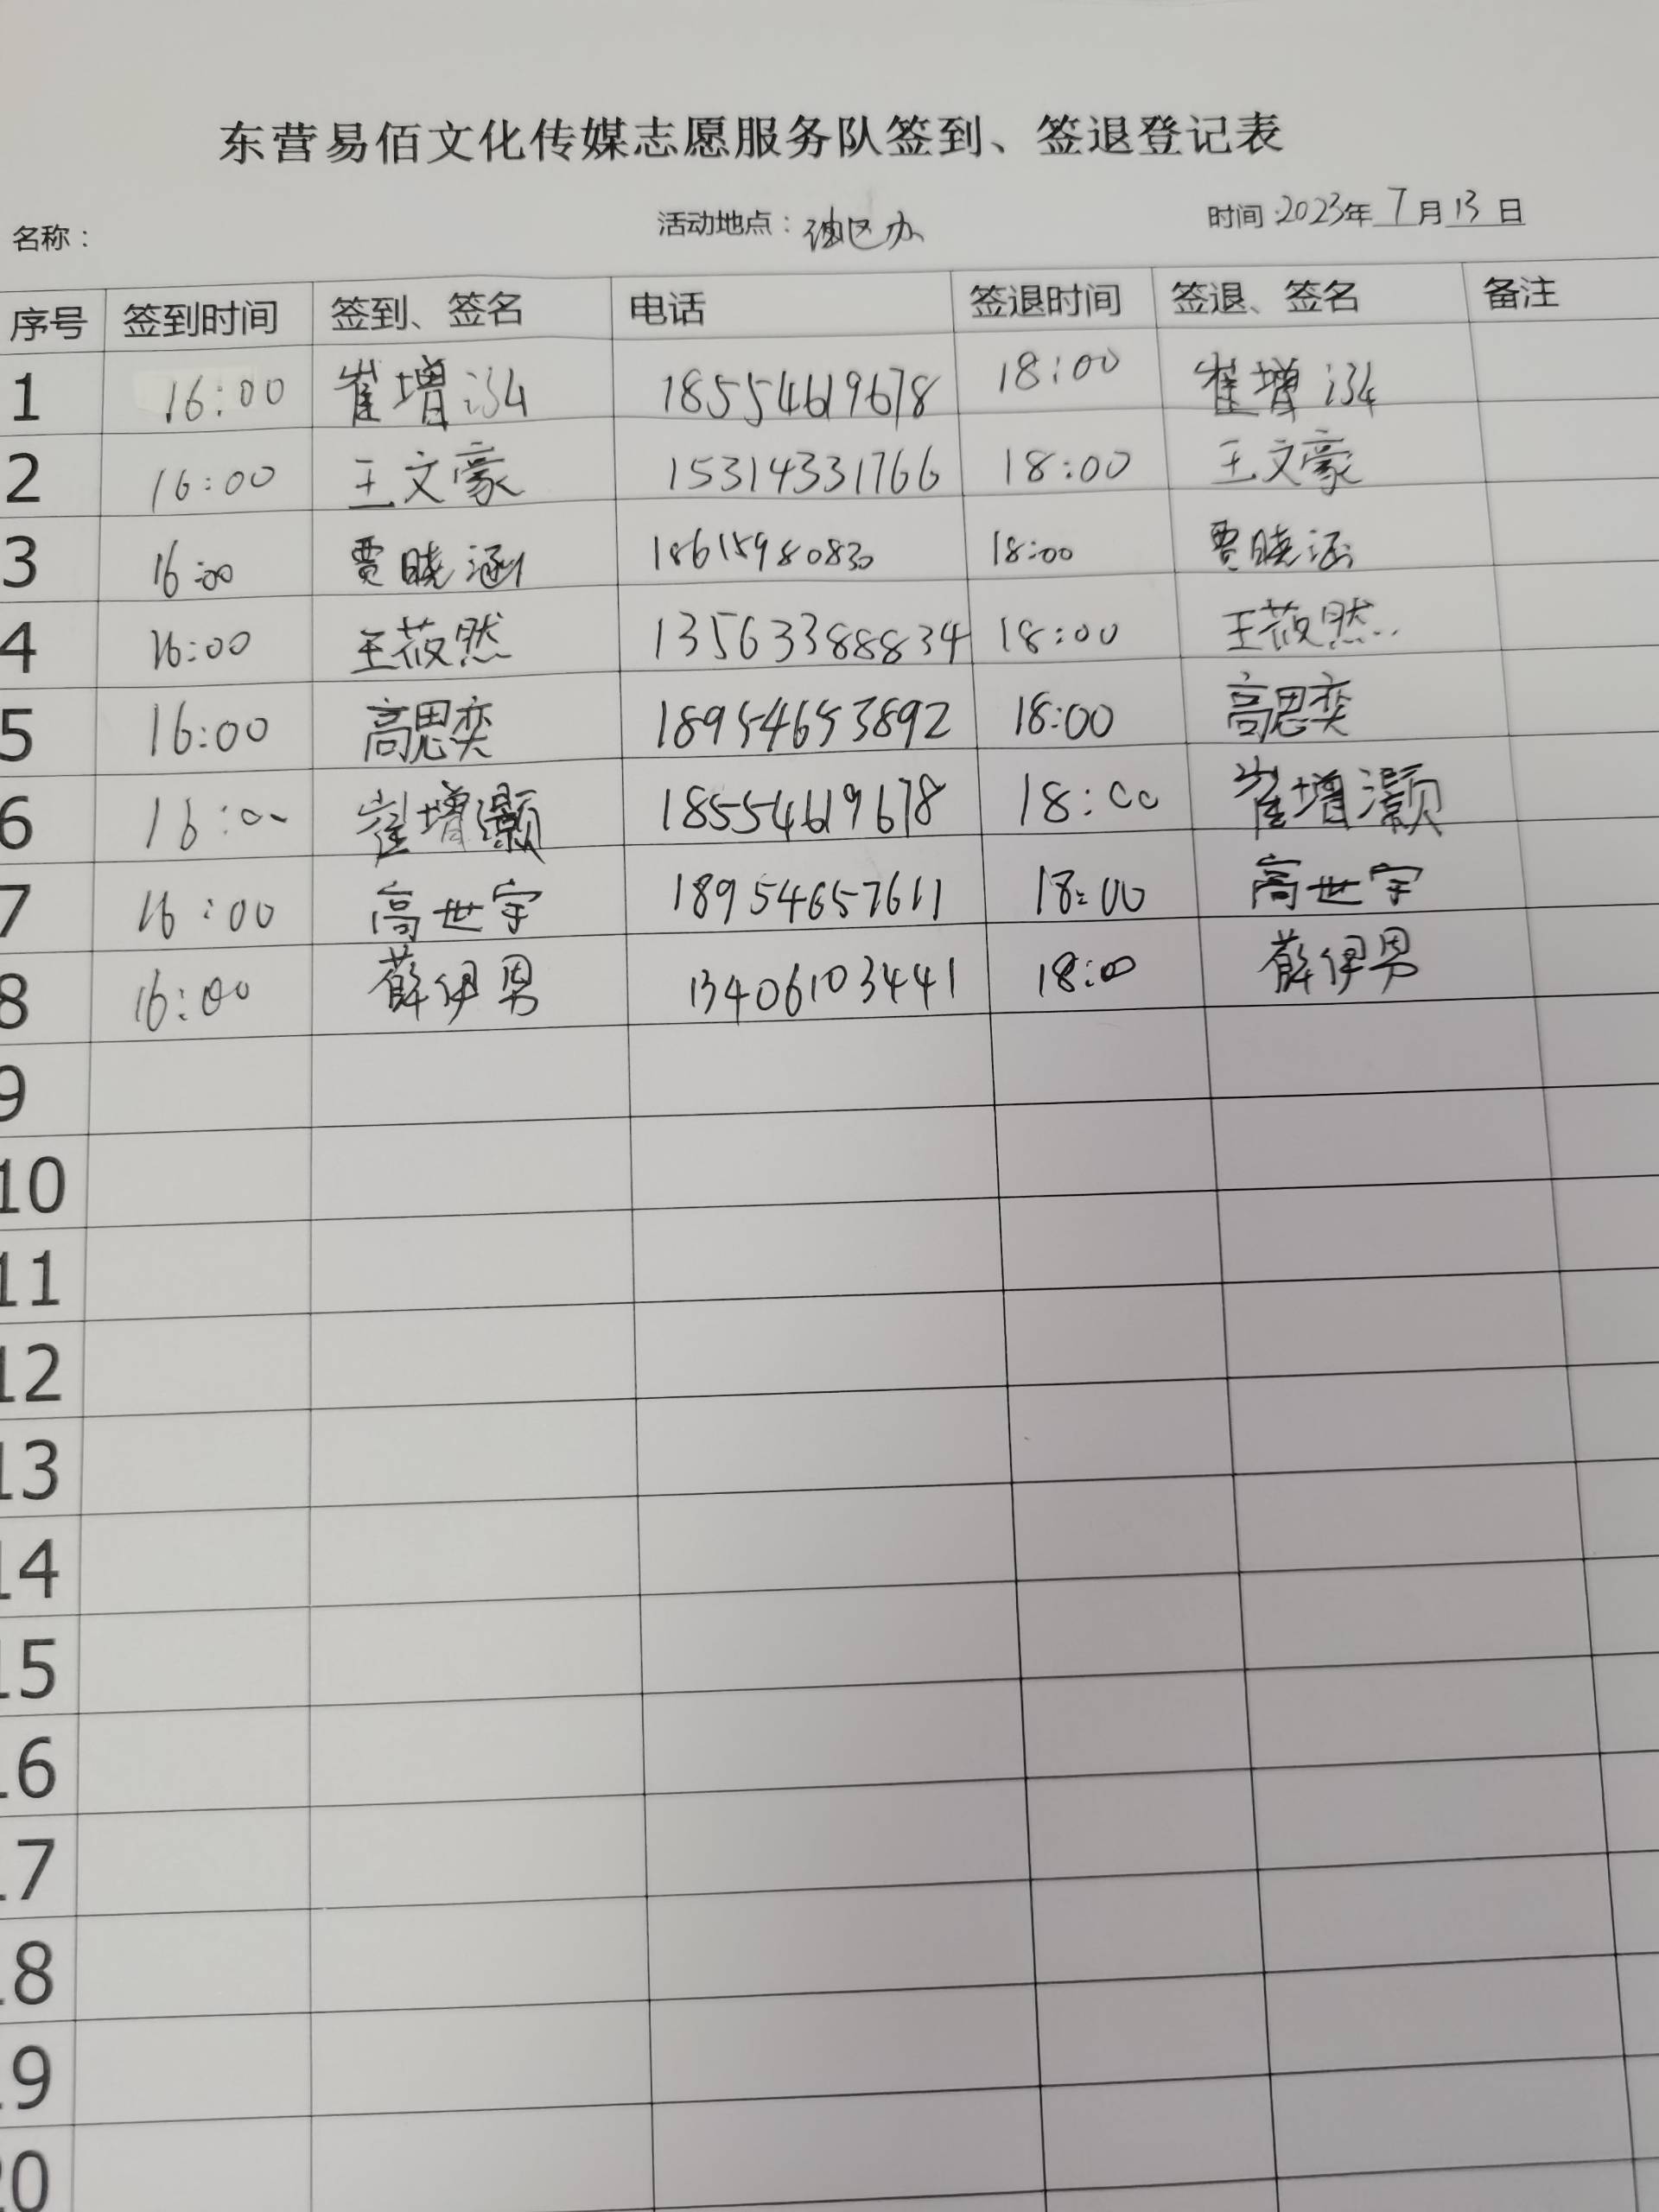 东营易佰文化传媒志愿服务队签到、签退登记表
名称： 活动地点： 时间：2023年7月13日
序号 签到时间 签到、签名 电话 签退时间 签退、签名 备注
1 16:00 崔增泓 18554619678 18:00 崔增泓
2 16:00 王文豪 15314331766 18:00 王文豪
3 16:00 贾晓涵 18615980830 18:00 贾晓涵
4 16:00 王莜然 13563388834 18:00 王莜然
5 16:00 高思奕 18954653892 18:00 高思奕
6 16:00 崔增灏 18554619678 18:00 崔增灏
7 16:00 高世宇 18954657611 18:00 高世宇
8 16:00 薛伊男 13406103441 18:00 薛伊男
9
10
11
12
13
14
15
16
17
18
19
20